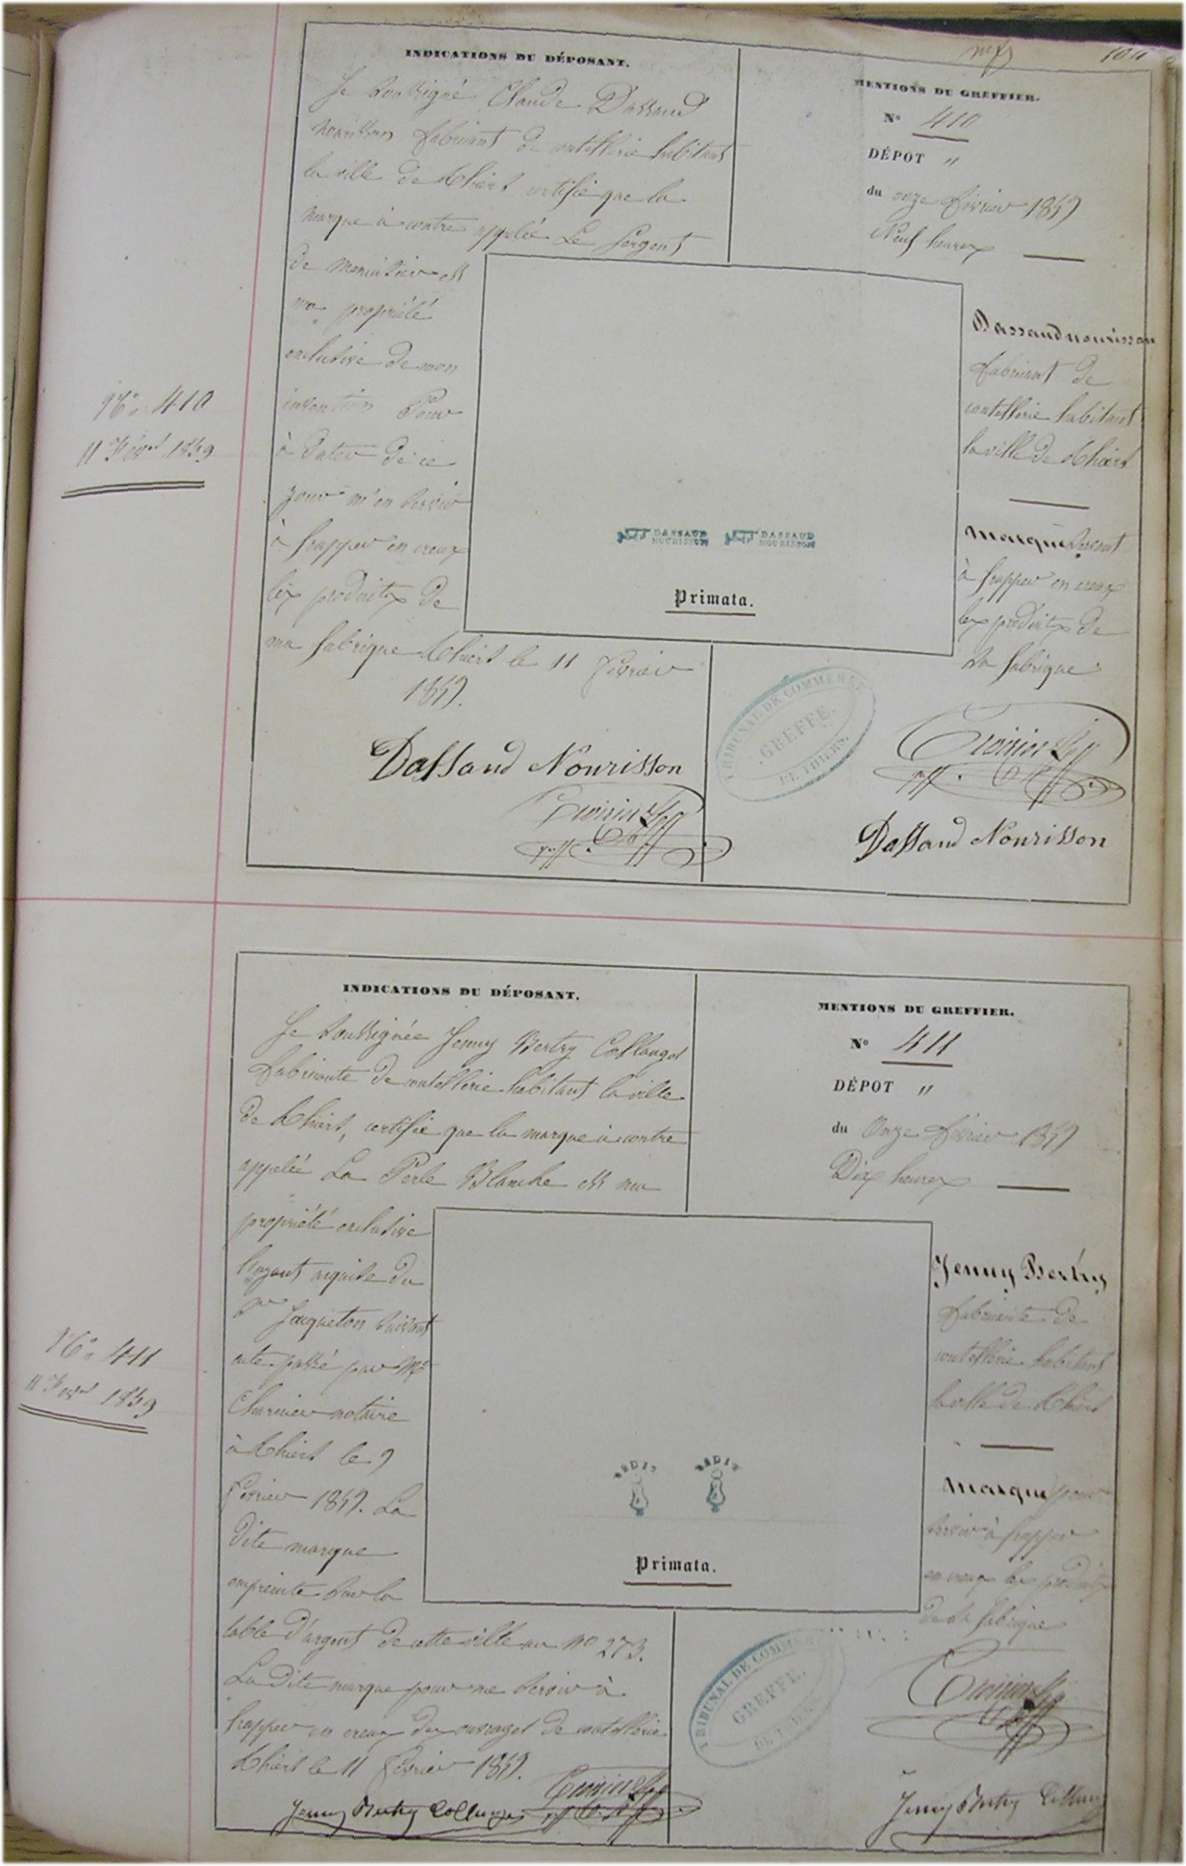 104
INDICATIONS DU DÉPOSANT.
Je soussigné Claude Dassaud
Nourisson fabricant de coutellerie habitant
la ville de Thiers certifie que la
marque ci contre appelée Le Sergent
de menuisier est
ma propriété
exclusive de mon
invention Pour
à dater de ce
jour m'en servir
à frapper en creux
les produits de
ma fabrique Thiers le 11 février
1859.
Dassaud Nourisson
MENTIONS DU GREFFIER.
N° 410
DÉPOT "
du onze février 1859
Neuf heures
Dassaud nourisson
fabricant de
coutellerie habitant
la ville de Thiers
Marque servant
à frapper en creux
les produits de
sa fabrique
Dassaud Nourisson
N° 410
11 Févri 1859
DASSAUD
NOURISSON
DASSAUD
NOURISSON
Primata.
TRIBUNAL DE COMMERCE
GREFFE.
DE THIERS.
INDICATIONS DU DÉPOSANT.
Je soussignée Jenny Bertry Collanges
fabricante de coutellerie habitant la ville
de Thiers, certifie que la marque ci contre
appelée La Perle Blanche est ma
propriété exclusive
l'ayant acquise du
Sr Jacqueton suivant
acte passé par Me
notaire
à Thiers le 9
février 1859. La
dite marque
empreinte sur la
table d'argent de cette ville au no 273.
La dite marque pour me servir à
frapper en creux des ouvrages de coutellerie
Thiers le 11 février 1859.
Jenny Bertry Collanges
MENTIONS DU GREFFIER.
N° 411
DÉPOT "
du Onze février 1859
Dix heures
Jenny Bertry
fabricante de
coutellerie habitant
la ville de Thiers
Marque pour
servir à frapper
en creux les produits
de sa fabrique
Jenny Bertry Collang
N° 411
11 Févri 1859
Primata.
TRIBUNAL DE COMMER
GREFFE.